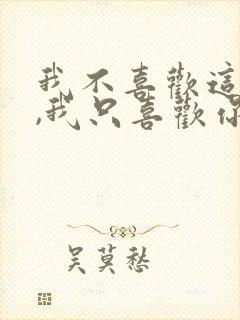 我不喜歡這
,我只喜歡你
吳莫愁